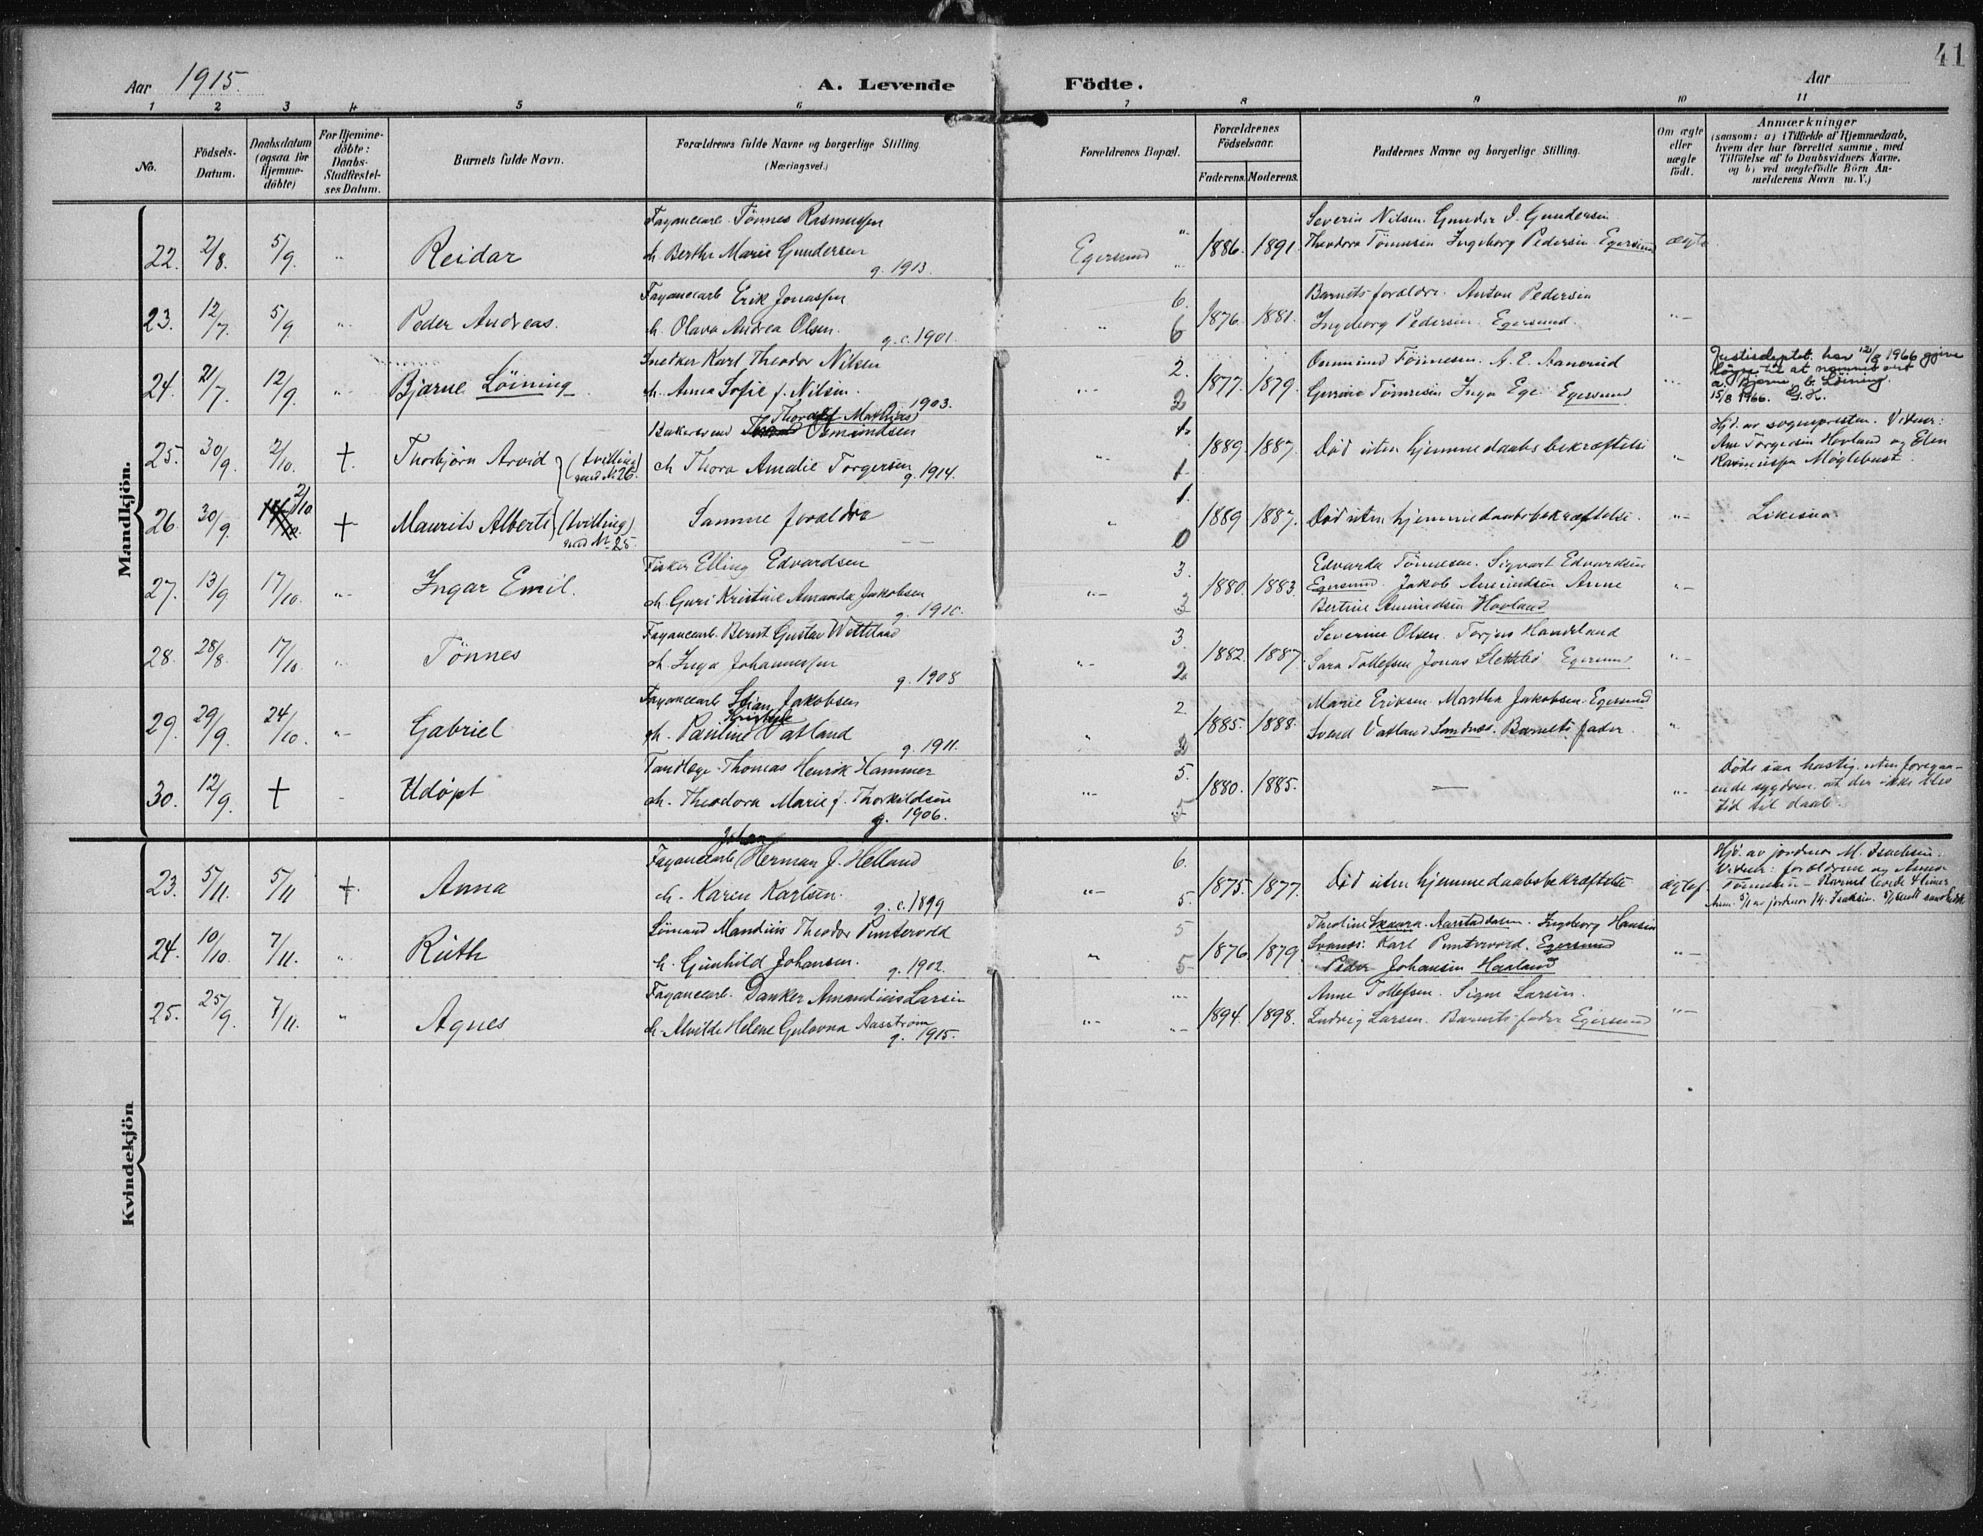 41
Aar 1915.
A. Levende Födte.
Aar
1 2 3 4 5 6 7 8 9 10 11
No.
Födsels-Datum.
Daabsdatum (ogsaa for Hjemme-döbte)
For Hjemme-döbte: Daabs-Stadfæstel-ses Datum.
Barnets fulde Navn.
Forældrenes fulde Navne og borgerlige Stilling (Næringsvei.)
Forældrenes Bopæl.
Forældrenes Födselsaar.
Faderens. Moderens.
Faddernes Navne og borgerlige Stilling.
Om ægte eller uægte födt.
Anmærkninger (saasom: a) i Tilfælde af Hjemmedaab, hvem der har forrettet samme, med Tilföielse af to Daabsvidners Navne, og b) ved uægtefödte Börn An-melderens Navn m. V.)
Mandkjön.
Fayancearb. Tönnes Rasmussen
Severin Nilsen. Gunder J. Gundersen
22. 2/8. 5/9. " Reidar
h. Berthe Marie Gundersen g. 1913.
Egersund " 1886. 1891.
Theodora Tönnesen Ingeborg Pedersen. Egersund ægte
Fayancearb Erik Jonassen
6.
Barnets forældre. Anton Pedersen
23. 12/7. 5/9. " Peder Andreas.
h. Olava Andrea Olsen. g. c. 1901.
" 6 1876. 1881.
Ingeborg Pedersen. Egersund. "
Snekker Karl Theodor Nilsen
2.
Ommund Tönnesen. A. E. Aanerud
Justisdeptet. har 12/8 1966 gjeve
löyve til at namnet vert
24. 21/7. 12/9. " Bjarne Löining
h. Anna Sofie f. Nilsen. 1903.
" 2 1877. 1879.
Tönnesen Inga Ege. Egersund "
a. Bjarne, b. Löining.
15/8 1966. G.H.
Thoralf Mathias
Bakersvend Osmundsen
1.
Hjd. av sognepresten. Vidner:
25. 30/9. 2/10. +. Thorbjörn Arvid (tvilling med Nr 26.
h. Thora Amalie Torgersen g. 1914.
" 1 1889. 1887.
Död uten hjemmedaabsbekræftelse "
Ane Torgersen Hovland og Elen
Rasmussen Möglebust.
26. 30/9. 2/10 + Maurits Alberti (tvilling) med Nr 25.
Samme forældre
" 1. 0 1889 1887.
Död uten hjemmedaabsbekræftelse. " Likesaa
Fisker Elling Edvardsen
3.
Edvarda Tönnesen. Sigvart Edvardsen
27. 13/9 17/10. " Ingar Emil.
h. Guri Kristine Amanda Jakobsen g. 1910.
" 2 1880. 1883.
Egersund. Jakob Amundsen Anne
Bertine Amundsen Hovland "
Fayancearb. Bernt Gustav Wetteland
3.
Severine Olsen. Torjus Handeland
28. 28/8. 17/10. " Tönnes
h. Inga Johannessen g. 1908
" 2. 1882. 1887.
Sara Tollefsen Jonas Slettebö Egersund "
Fayancearb Stian Jakobsen
2
Marie Eriksen. Martha Jakobsen. Egersund
29. 29/9. 24/10. " Gabriel
h. Pauline Vatland g. 1911.
" 2 1885. 1888.
Svend Vatland Sandnes. Barnets fader. "
Tandlæge. Thomas Henrik Hammer
5.
Döde saa hastig. uten foregaa-
30. 12/9. + - Udöpt
h. Theodora Marie f. Thorkildsen g. 1906.
" 5 1880. 1885. —
" ende sygdom. at der ikke blev
tid til daab.
Kvindekjön
Johan
Fayancearb Herman J. Helland
6.
Hjd. av jordmor M. Isachsen.
23. 5/11. 5/11 +. Anna
h. Karen Karlsen. g. c. 1899
" 5. 1875. 1877.
Död uten hjemmedaabsbekræftelse ægtef.
Vidner: forældrene og
Tönnesen – Barnet levde 4 timer
Lösmand Mandius Theodor Puntervold
5
Theoline Skaara. Aarstaddalen. Ingeborg Hansen
24. 10/10. 7/11. " Ruth
h. Gunhild Johansen. g. 1902.
" 5 1876. 1879.
Svanes: Karl Puntervold. Egersund "
Peder Johansen Haaland
Fayancearb. Danker Amandius Larsen
Anne Tollefsen. Signe Larsen.
25. 25/9. 7/11. " Agnes
h. Alvilde Helene Gulavna Aasström g. 1915.
" 1894. 1898.
Ludvig Larsen. Barnets fader Egersund "